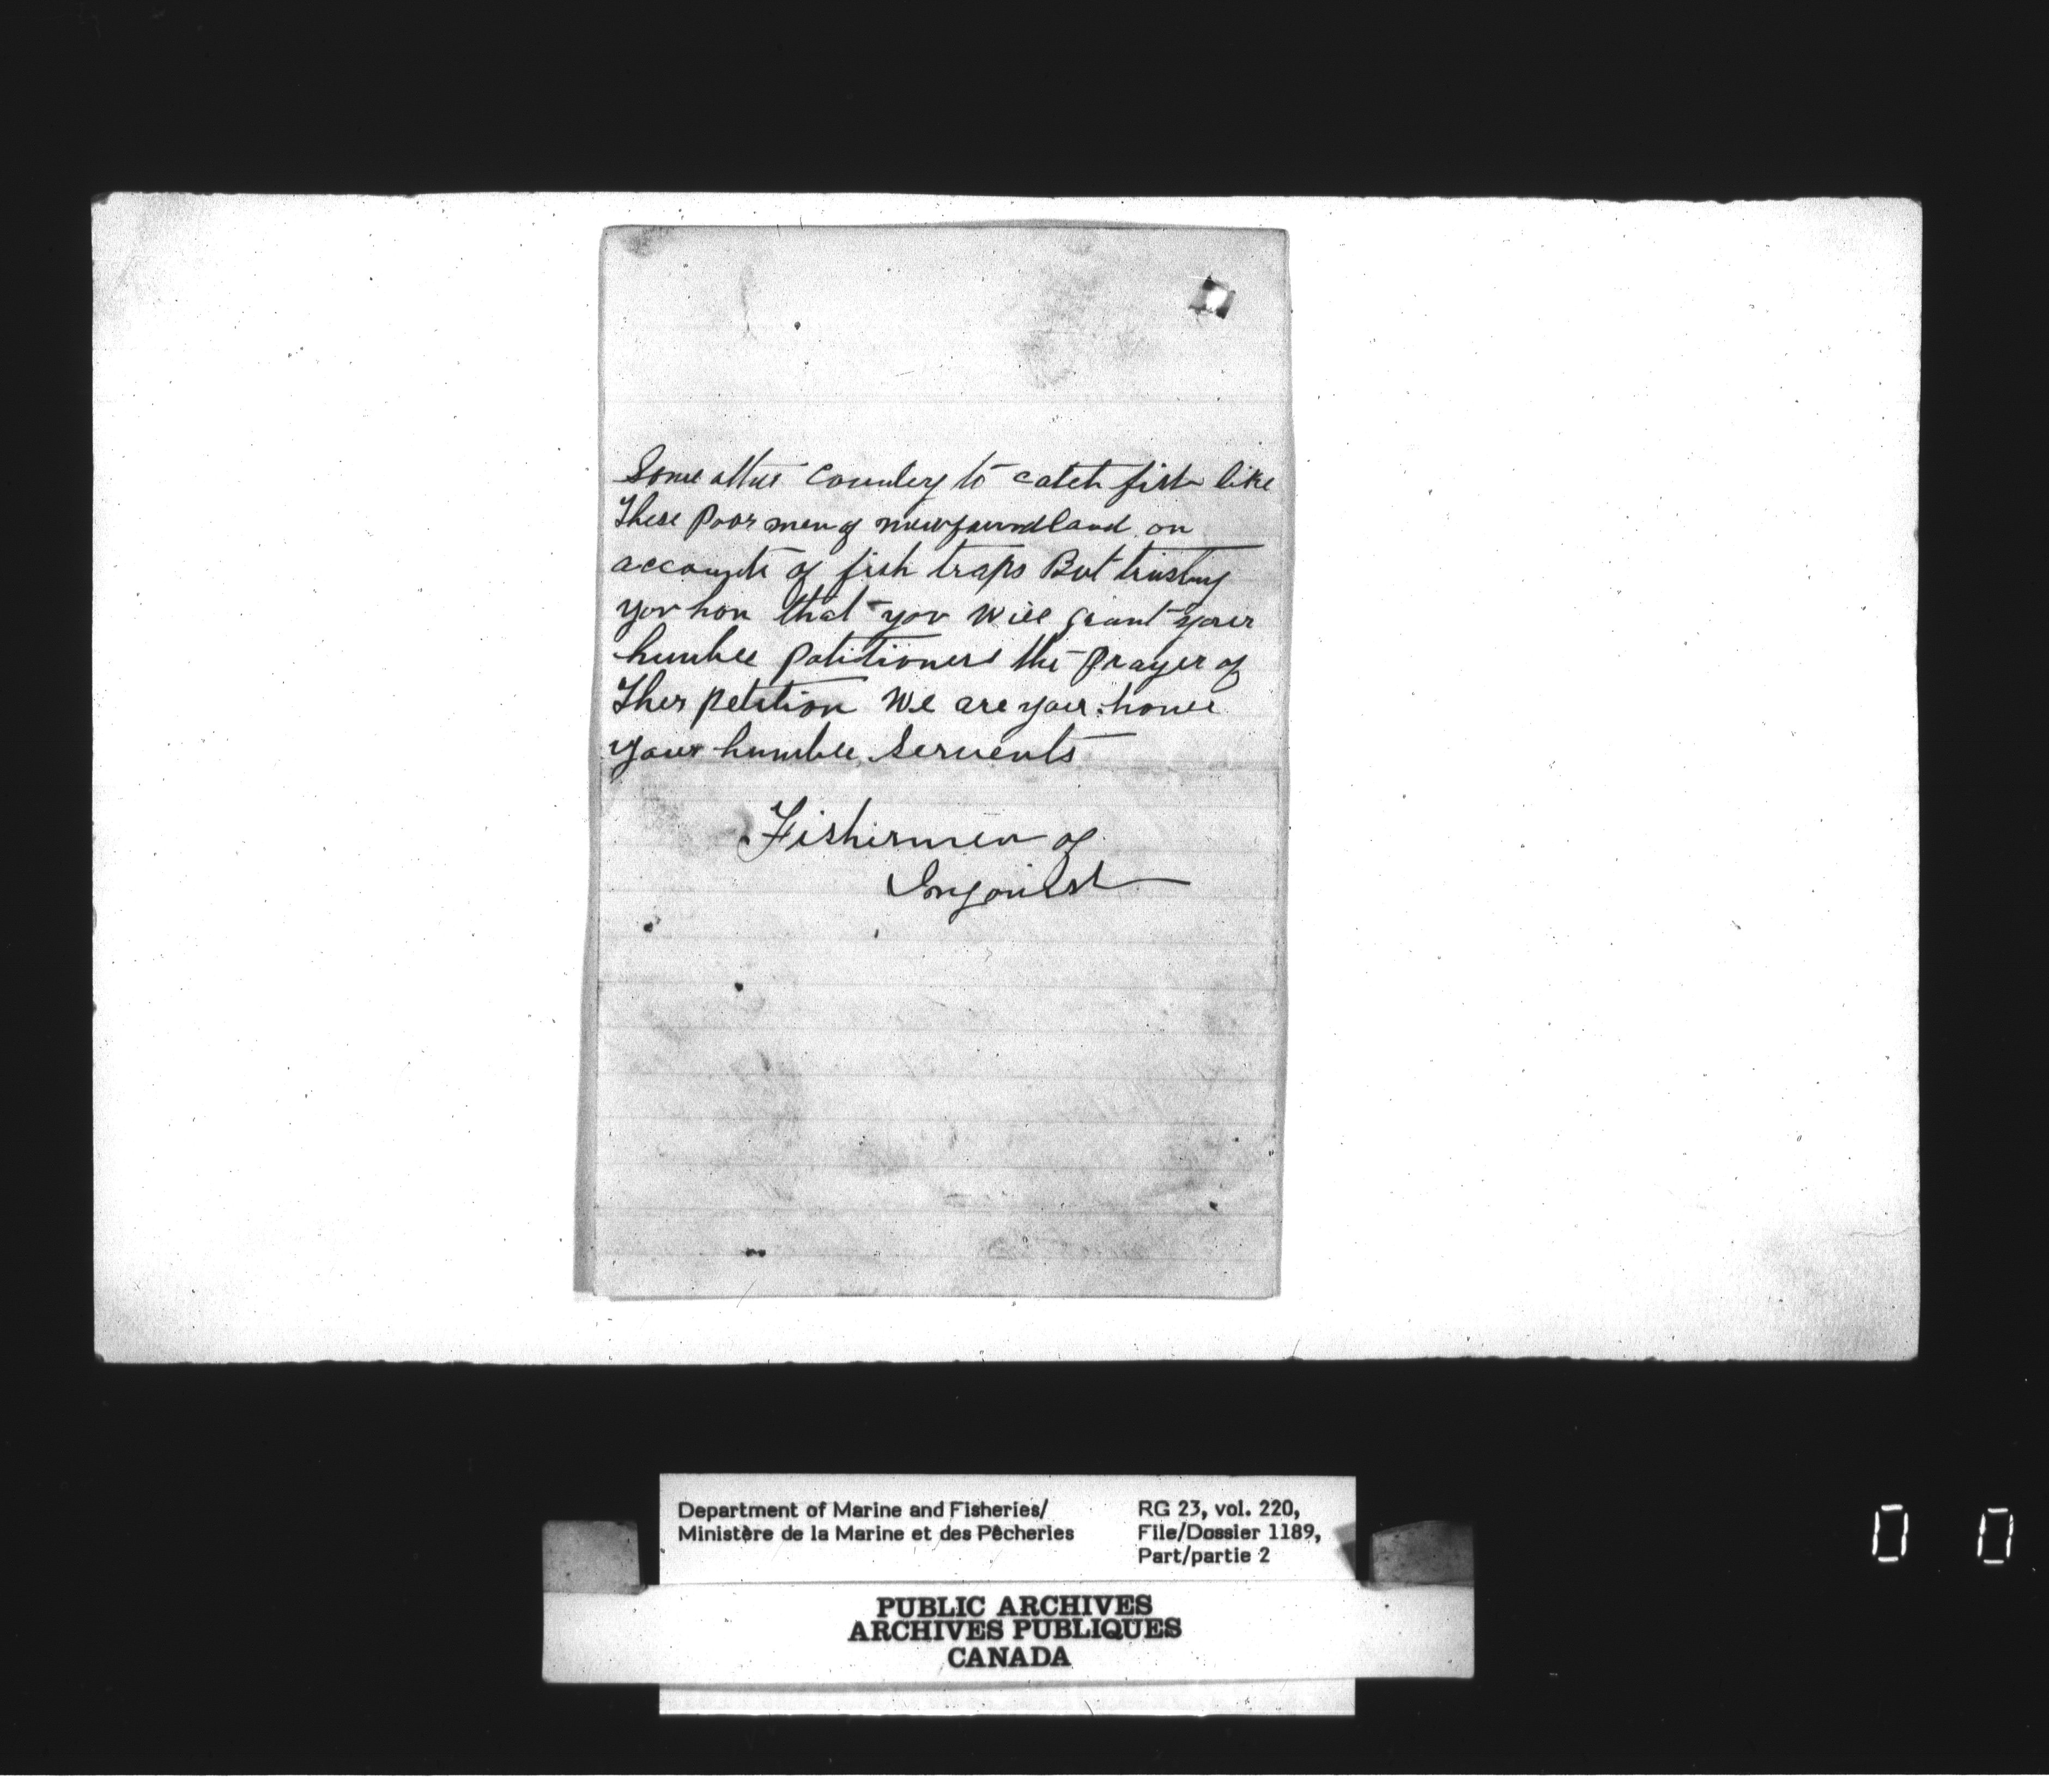 Some other Country to catch fish like
these poor men of newfoundland on
accounts of fish traps But trusting
yov hon that yov will grant your
humble patitioners the prayer of
Ther petition We are your honer
your humble Servents
Fishermen of
Ingonish
Department of Marine and Fisheries/
Ministère de la Marine et des Pêcheries
RG 23, vol. 220,
File/Dossier 1189,
Part/partie 2
PUBLIC ARCHIVES
ARCHIVES PUBLIQUES
CANADA
0 0